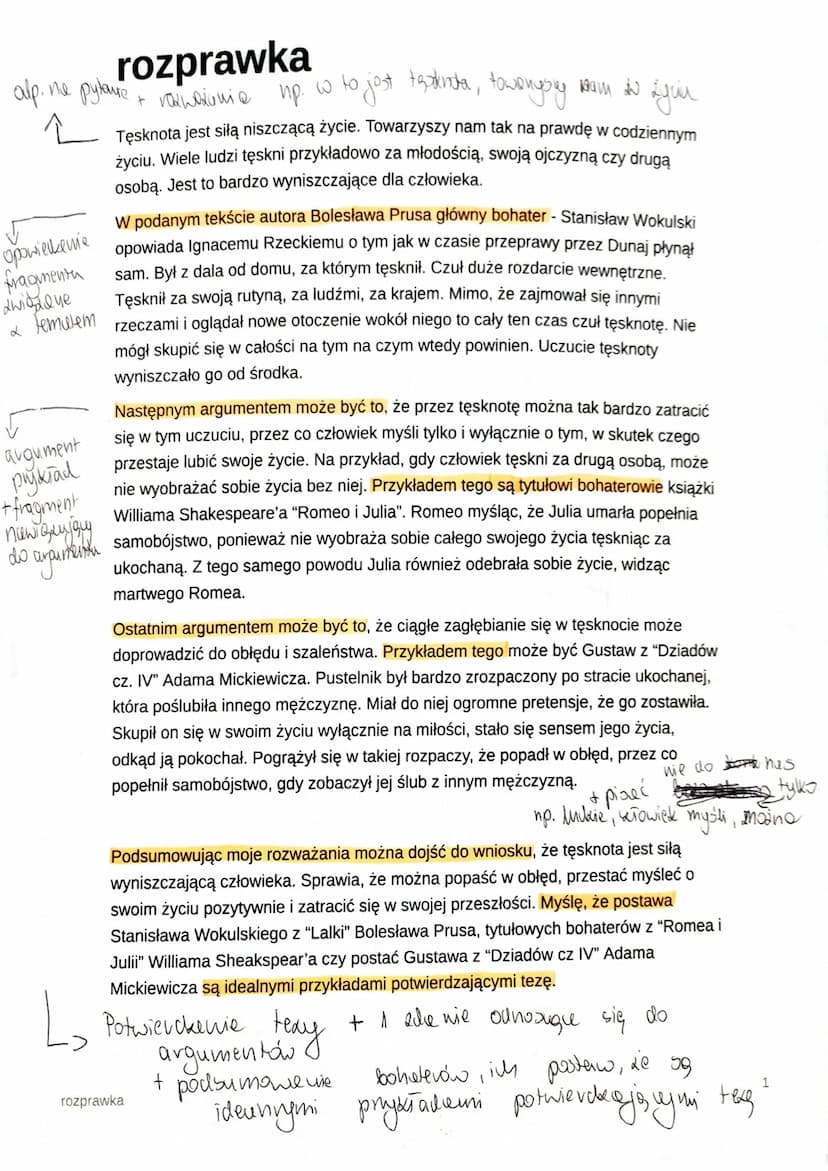 rozprawka
odp. na pytanie + rozważenia np. co to jest tęsknota, towarzyszy nam w życiu
Tęsknota jest siłą niszczącą życie. Towarzyszy nam tak na prawdę w codziennym
życiu. Wiele ludzi tęskni przykładowo za młodością, swoją ojczyzną czy drugą
osobą. Jest to bardzo wyniszczające dla człowieka.
W podanym tekście autora Bolesława Prusa główny bohater - Stanisław Wokulski
opowiada Ignacemu Rzeckiemu o tym jak w czasie przeprawy przez Dunaj płynął
sam. Był z dala od domu, za którym tęsknił. Czuł duże rozdarcie wewnętrzne.
Tęsknił za swoją rutyną, za ludźmi, za krajem. Mimo, że zajmował się innymi
rzeczami i oglądał nowe otoczenie wokół niego to cały ten czas czuł tęsknotę. Nie
mógł skupić się w całości na tym na czym wtedy powinien. Uczucie tęsknoty
wyniszczało go od środka.
opowiedzenie
fragmentu
związane
z tematem
Następnym argumentem może być to, że przez tęsknotę można tak bardzo zatracić
się w tym uczuciu, przez co człowiek myśli tylko i wyłącznie o tym, w skutek czego
przestaje lubić swoje życie. Na przykład, gdy człowiek tęskni za drugą osobą, może
nie wyobrażać sobie życia bez niej. Przykładem tego są tytułowi bohaterowie książki
Williama Shakespeare'a “Romeo i Julia”. Romeo myśląc, że Julia umarła popełnia
samobójstwo, ponieważ nie wyobraża sobie całego swojego życia tęskniąc za
ukochaną. Z tego samego powodu Julia również odebrała sobie życie, widząc
martwego Romea.
argument
przykład
+ fragment
nawiązujący
do argumentu
Ostatnim argumentem może być to, że ciągłe zagłębianie się w tęsknocie może
doprowadzić do obłędu i szaleństwa. Przykładem tego może być Gustaw z “Dziadów
cz. IV” Adama Mickiewicza. Pustelnik był bardzo zrozpaczony po stracie ukochanej,
która poślubiła innego mężczyznę. Miał do niej ogromne pretensje, że go zostawiła.
Skupił on się w swoim życiu wyłącznie na miłości, stało się sensem jego życia,
odkąd ją pokochał. Pogrążył się w takiej rozpaczy, że popadł w obłęd, przez co
popełnił samobójstwo, gdy zobaczył jej ślub z innym mężczyzną.
nie do nas
+ pisać tylko
np. ludzie, człowiek myśli, można
Podsumowując moje rozważania można dojść do wniosku, że tęsknota jest siłą
wyniszczającą człowieka. Sprawia, że można popaść w obłęd, przestać myśleć o
swoim życiu pozytywnie i zatracić się w swojej przeszłości. Myślę, że postawa
Stanisława Wokulskiego z “Lalki” Bolesława Prusa, tytułowych bohaterów z “Romea i
Julii” Williama Sheakspear'a czy postać Gustawa z “Dziadów cz IV” Adama
Mickiewicza są idealnymi przykładami potwierdzającymi tezę.
Potwierdzenie tezy + 1 zdanie odnoszące się do
argumentów
+ podsumowanie bohaterów, ich postaw, że są
idealnymi przykładami potwierdzającymi tezę
rozprawka
1